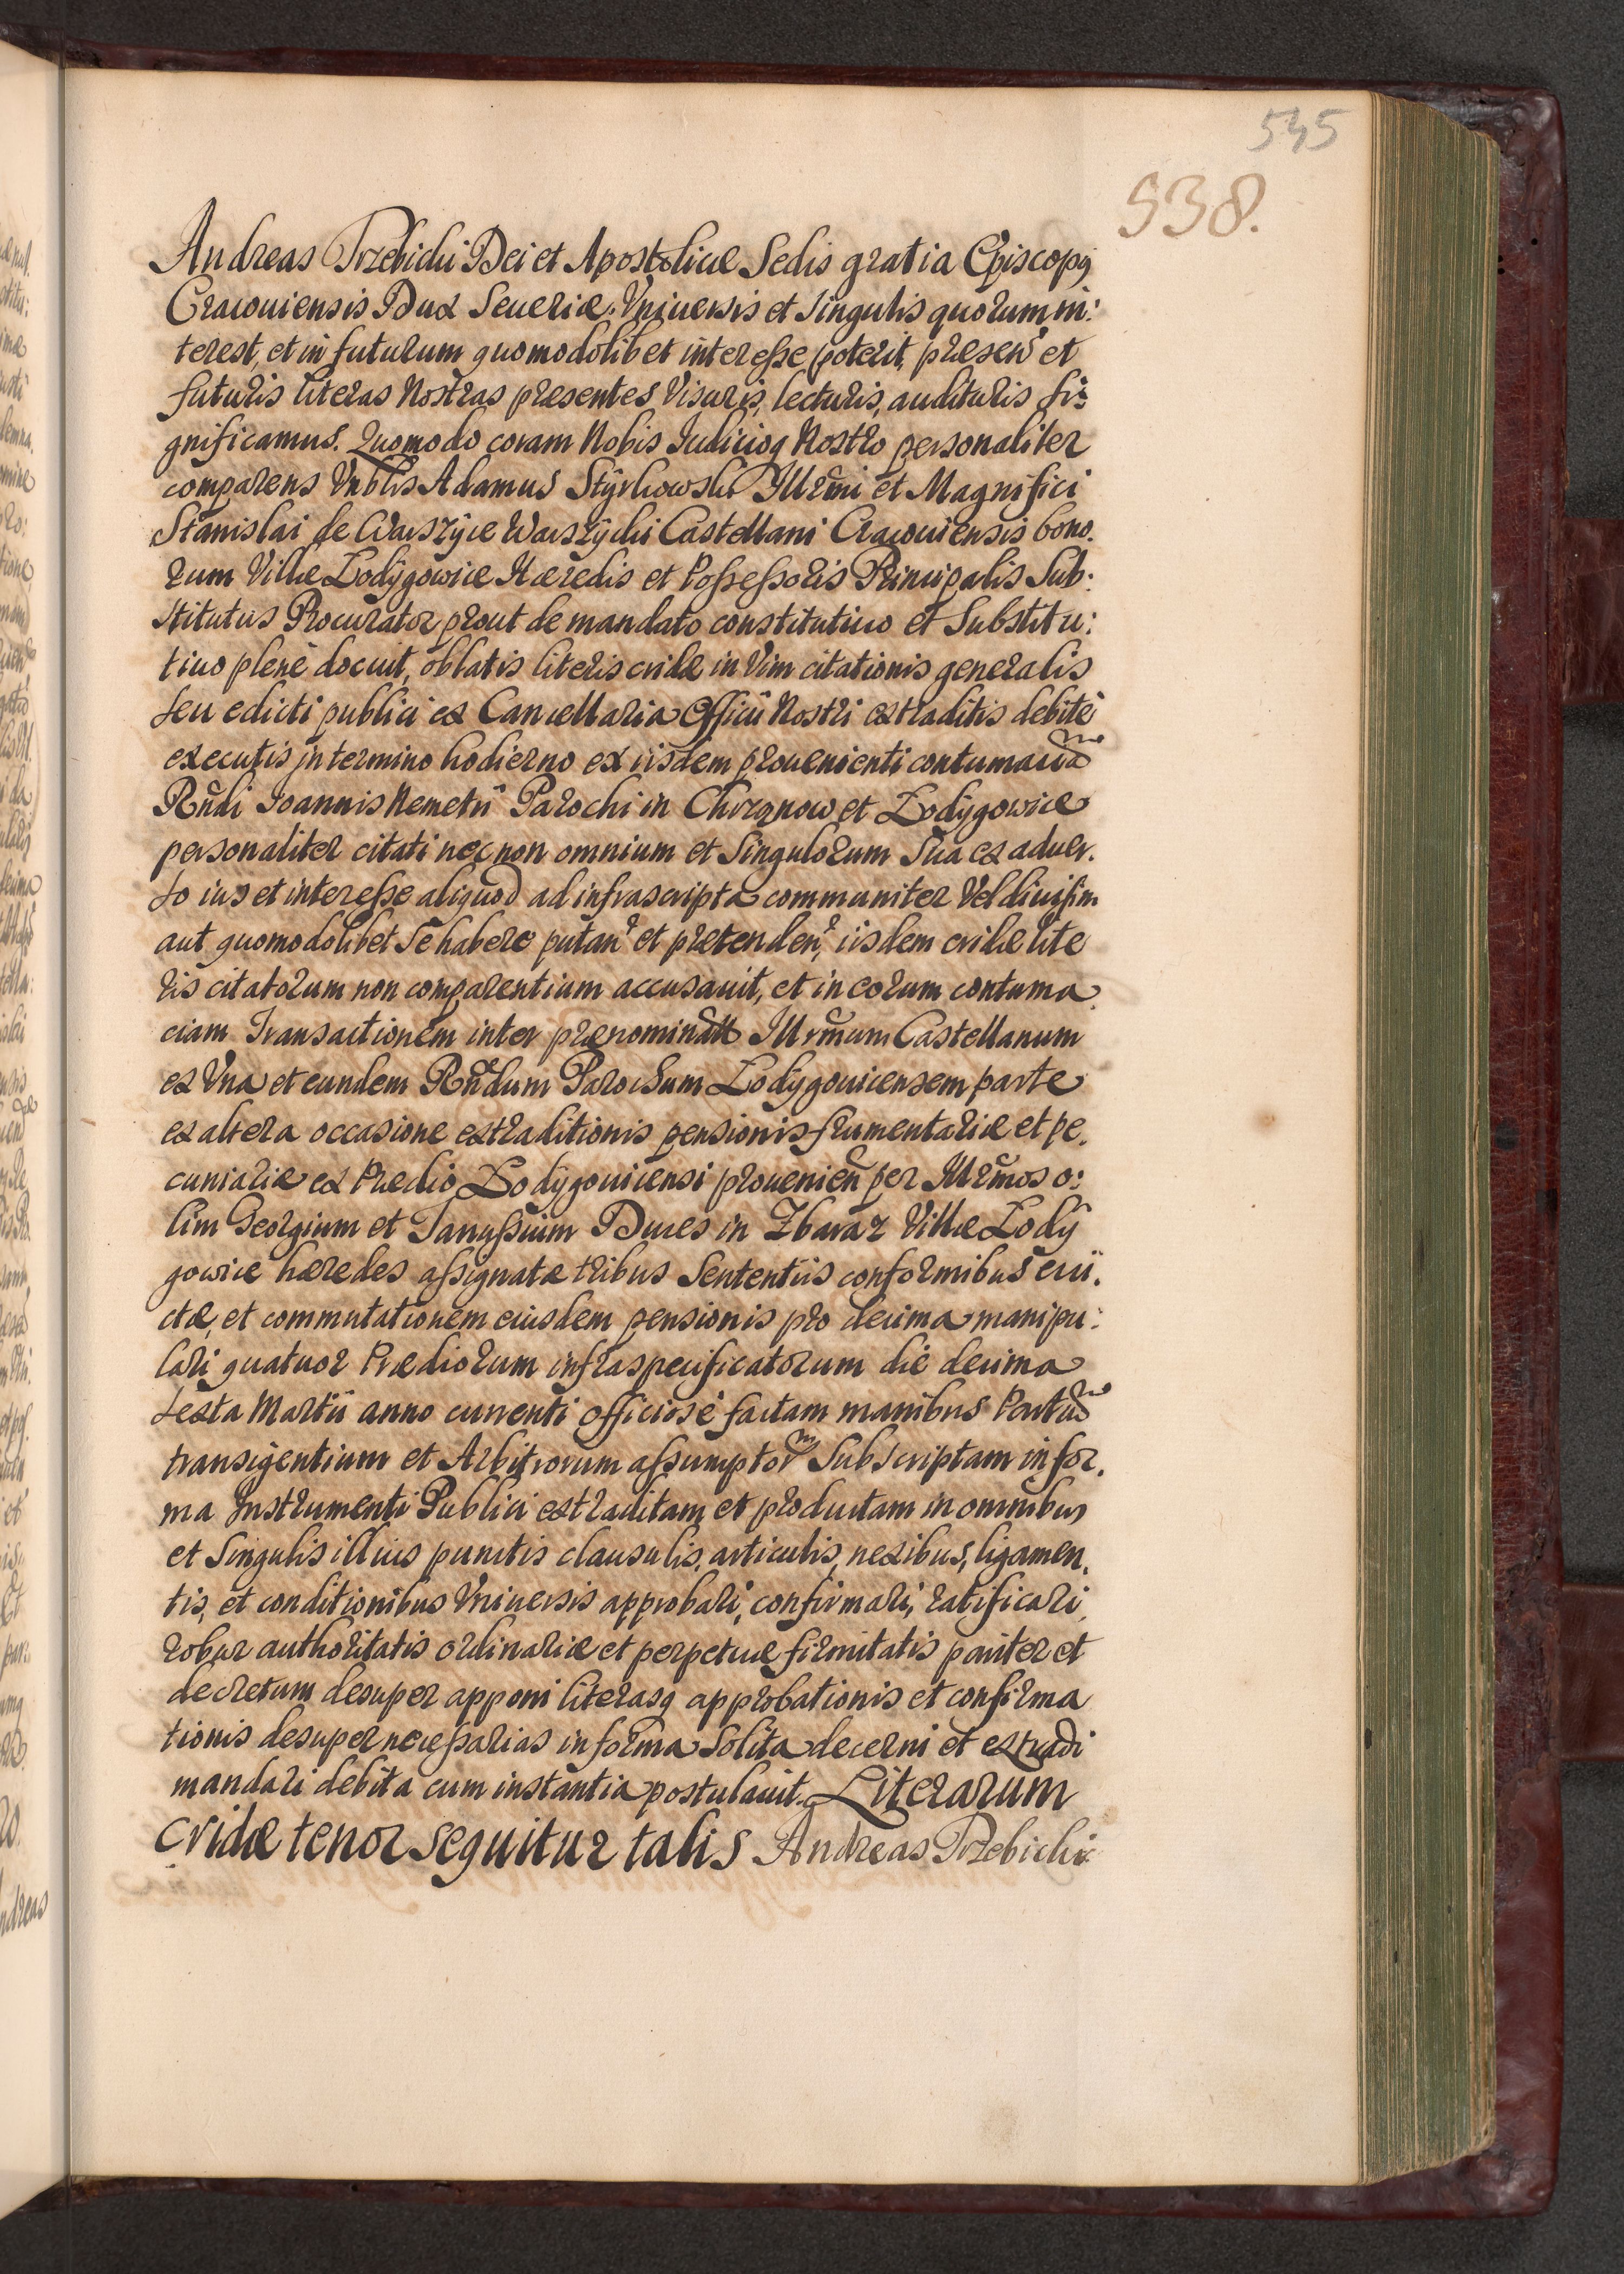 545
538.
Andreas Trzebicki Dei et Apostolicæ Sedis gratia Episcopq
Cracouiensis Dux Seueriæ. Vniuersis et singulis quorum in:
terest, et in futurum quomodolibet interesse poterit, præsen et
futuris literas Nostras presentes Visuris, lecturis, audituris si:
gnificamus. Quomodo coram Nobis Iudicioq Nostro personaliter
comparens Vnblis Adamus Styrkowski Illrmi et Magnifici
Stanislai de Warszyce Warszycki Castellani Cracouiensis bono.
rum Villæ Łodygowice Hæredis et Possessoris Principalis Sub:
stitutus Procurator prout de mandato constitutiuo et Substitu:
tiuo plenè docuit, oblatis literis cridæ in Vim citationis generalis
seu edicti publici ex Cancellaria Officii Nostri extraditis debitè
executis in termino hodierno ex iisdem prouenienti contumaciam
Rndi Ioannis Nemetii Parochi in Chrzanow et Łodygowice
personaliter citati nec non omnium et Singulorum Sua ex aduer.
so ius et interesse aliquod ad infrascripta communiter Vel diuisim
aut quomodolibet Se habere putan et pretenden, iisdem cridæ lite
ris citatorum non comparentium accusauit, et in eorum contuma.
ciam Transactionem inter prænominatt Illrmum Castellanum
ex Vna et eundem Rndum Parochum Łodygouicensem parte
ex altera occasione extraditionis pensionis frumentariæ et pe.
cuniariæ ex Prædio Łodygouicensi prouenien per Illrmos o:
lim Georgium et Janussium Duces in Zbaraz Villæ Łody
gowice hæredes assignatæ tribus Sententiis conformibus eui.
ctæ, et commutationem eiusdem pensionis pro decima manipu:
lari quatuor Prædiorum infraspecificatorum die decima
sexta Martii anno currenti officiosè factam manibus Partium
transigentium et Arbitrorum assumptorm Subscriptam in for.
ma Instrumenti Publici extraditam et productam in omnibus
et Singulis illius punctis clausulis, articulis, nexibus, ligamen.
tis, et conditionibus Vniuersis approbari, confirmari, ratificari
robur authoritatis ordinariæ et perpetuæ firmitatis pariter et
decretum desuper apponi literasq approbationis et confirma
tionis desuper necessarias in forma Solita decerni et extradi
mandari debita cum instantia postulauit. Literarum
cridæ tenor sequitur talis Andreas Trzebicki